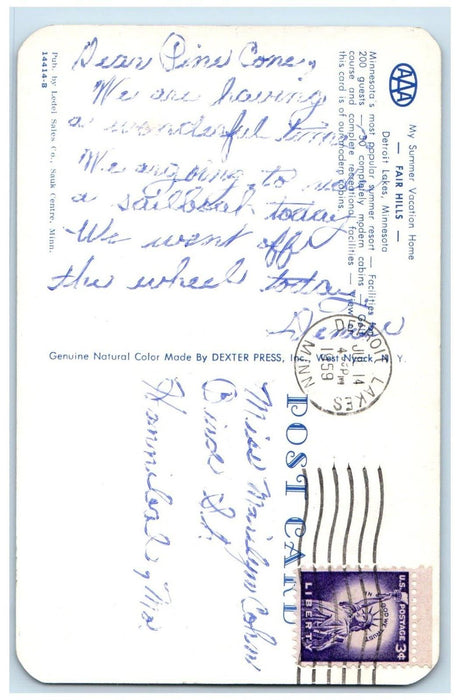 My Summer Vacation Home
— FAIR HILLS —
Detroit Lakes, Minnesota
Minnesota's most popular summer resort — Facilities for
200 guests — 30 completely modern cabins — Golf
course and complete recreational facilities — View on
this card is of our modern cabins.
AAA
Dear Pine Cone,
We are having
a wonderful time
We are going to
a sailboat today
We went off
the wheel today
Genuine Natural Color Made By DEXTER PRESS, Inc., West Nyack, N. Y.
Pub. by Ledel Sales Co., Sauk Centre, Minn.
14414-B
POST CARD
DETROIT LAKES
JUL 14
4 PM
1959
MINN
U.S. POSTAGE 3¢
IN GOD WE TRUST
LIBERTY
Miss Marilyn Cohn
Bird St.
Hannibal, Mo